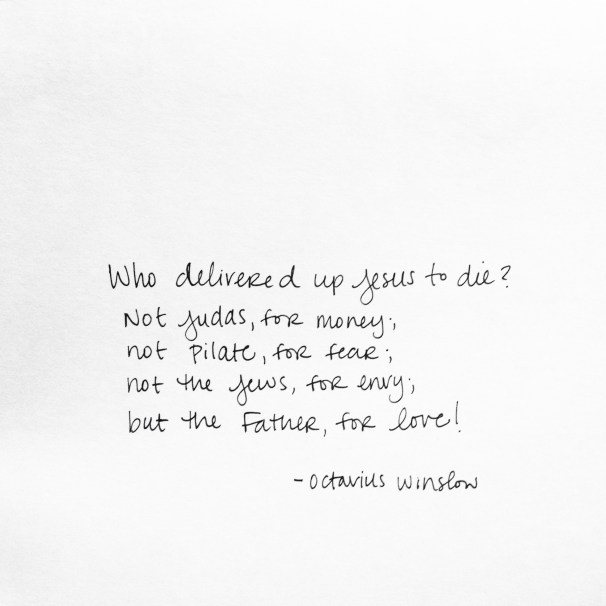 Who delivered up Jesus to die?
Not Judas, for money;
not Pilate, for fear;
not the Jews, for envy;
but the Father, for love!
- Octavius Winslow